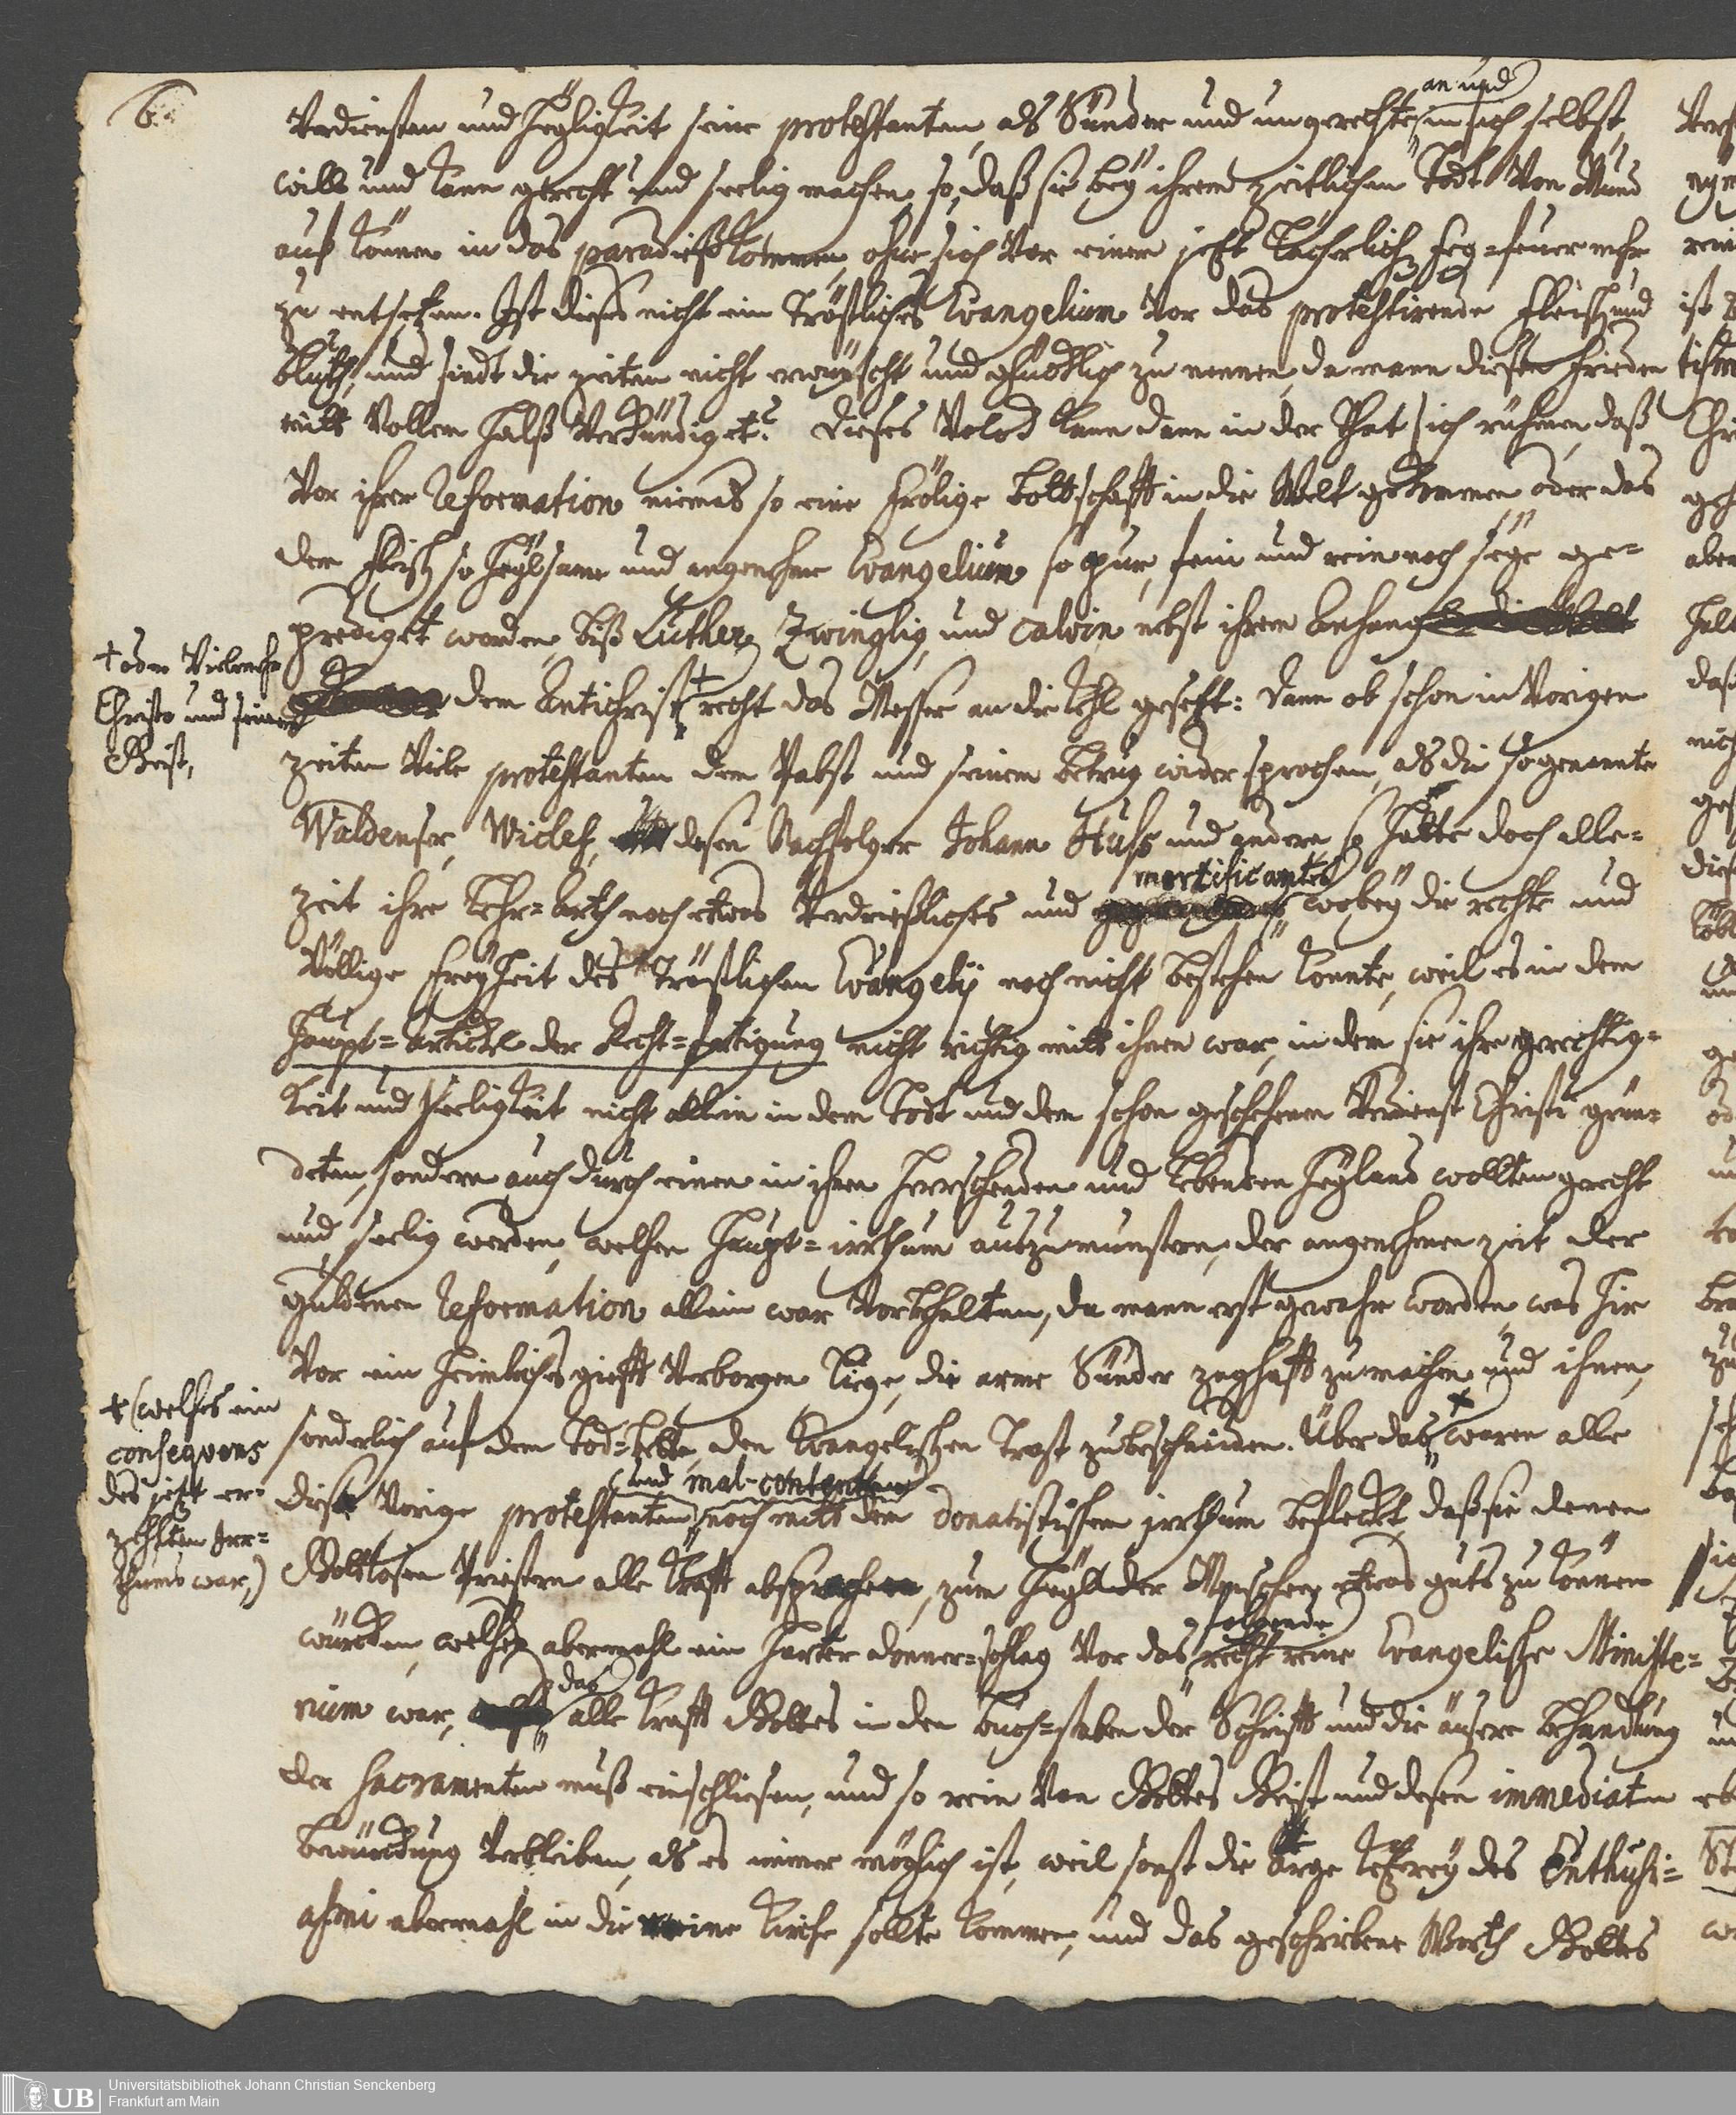 6.
an und
Verdiensten und Heyligkeit seine protestanten, als Sünder und ungerechte, in sich selbst,
will und kann gerecht und seelig machen, so, daß sie bey ihrem zeitlichen Todt von Mund
auf können in das paradieß kommen, ohne sich vor einem jetzt lächerlich Feg-feuer mehr
zu entsetzen. Ist dieses nicht ein tröstliches Evangelium vor das protestirende Fleisch und
Bluth, und sindt die zeiten nicht erwünscht und glücklich zu nennen, da mann diesen Frieden
mitt vollem Halß verkündiget? Dieses Volck kann dann in der That sich rühmen, daß
vor ihrer Reformation niemals so eine frölige Bottschafft in die Welt gekommen oder das
dem Fleisch so heylsame und angenehme Evangelium so pur, fein und rein noch seye ge-
prediget worden, biß Luther, Zwinglig, und Calvin nebst ihrem Anhang
dem Antichrist + recht das Messer an die Kehl gesetzt: dann ob schon in vorigen
+ oder vielmehr
Christo und seinem
Geist,
zeiten viele protestanten dem Pabst und seinem betrug widersprochen, als die sogenannte
Waldenser, Wiclef, desen Nachfolger Johann Huss und andere, so hatte doch alle-
mortificantes
zeit ihre Lehr-arth noch etwas verdrießliches und wobey die rechte und
völlige Freyheit des tröstlichen Evangelij noch nicht bestehen konnte, weil es in dem
Haupt-artickel der Recht-fertigung nicht richtig mitt ihnen war, in dem sie ihre gerechtig-
keit und Seeligkeit nicht allein in dem Todt und dem schon geschehenen Verdienst Christi grün-
deten, sondern auch durch einen in ihnen herrschenden und lebenden Heyland wollten gerecht
und seelig werden, welchen Haupt-irrthum auszumunstern, der angenehmen zeit der
guldenen Reformation allein war vorbehalten, da mann erst gewahr worden, was hir
vor ein heimliches gifft verborgen liege, die arme Sünder zaghafft zu machen und ihnen,
sonderlich auf dem Tod-bette, den Evangelischen Trost zu beschneiden. Über das + waren alle
+ (welches ein
consequens
des jetzt er-
zehlten Irr-
thums war,)
und mal-contenten
diese vorige protestanten noch mitt dem Donatistischen irrthum befleckt, daß sie denen
Gottlosen Priestern alle krafft absprachen, zum Heyl der Menschen etwas guts zu können
folgende
würcken, welches abermahl ein harter donner-schlag vor das recht reine Evangelische Ministe-
das
rium war, alle krafft Gottes in den buch-staben der Schrifft und die äusere behandlung
der Sacramenten muß einschliesen, und so rein von Gottes Geist und desen immediaten
bewürckung verbleiben, als es immer möglich ist, weil sonst die arge ketzerey des Enthusi-
asmi abermahl in die reine Kirche sollte kommen, und das geschriebene Worth Gottes
UB
Universitätsbibliothek Johann Christian Senckenberg
Frankfurt am Main